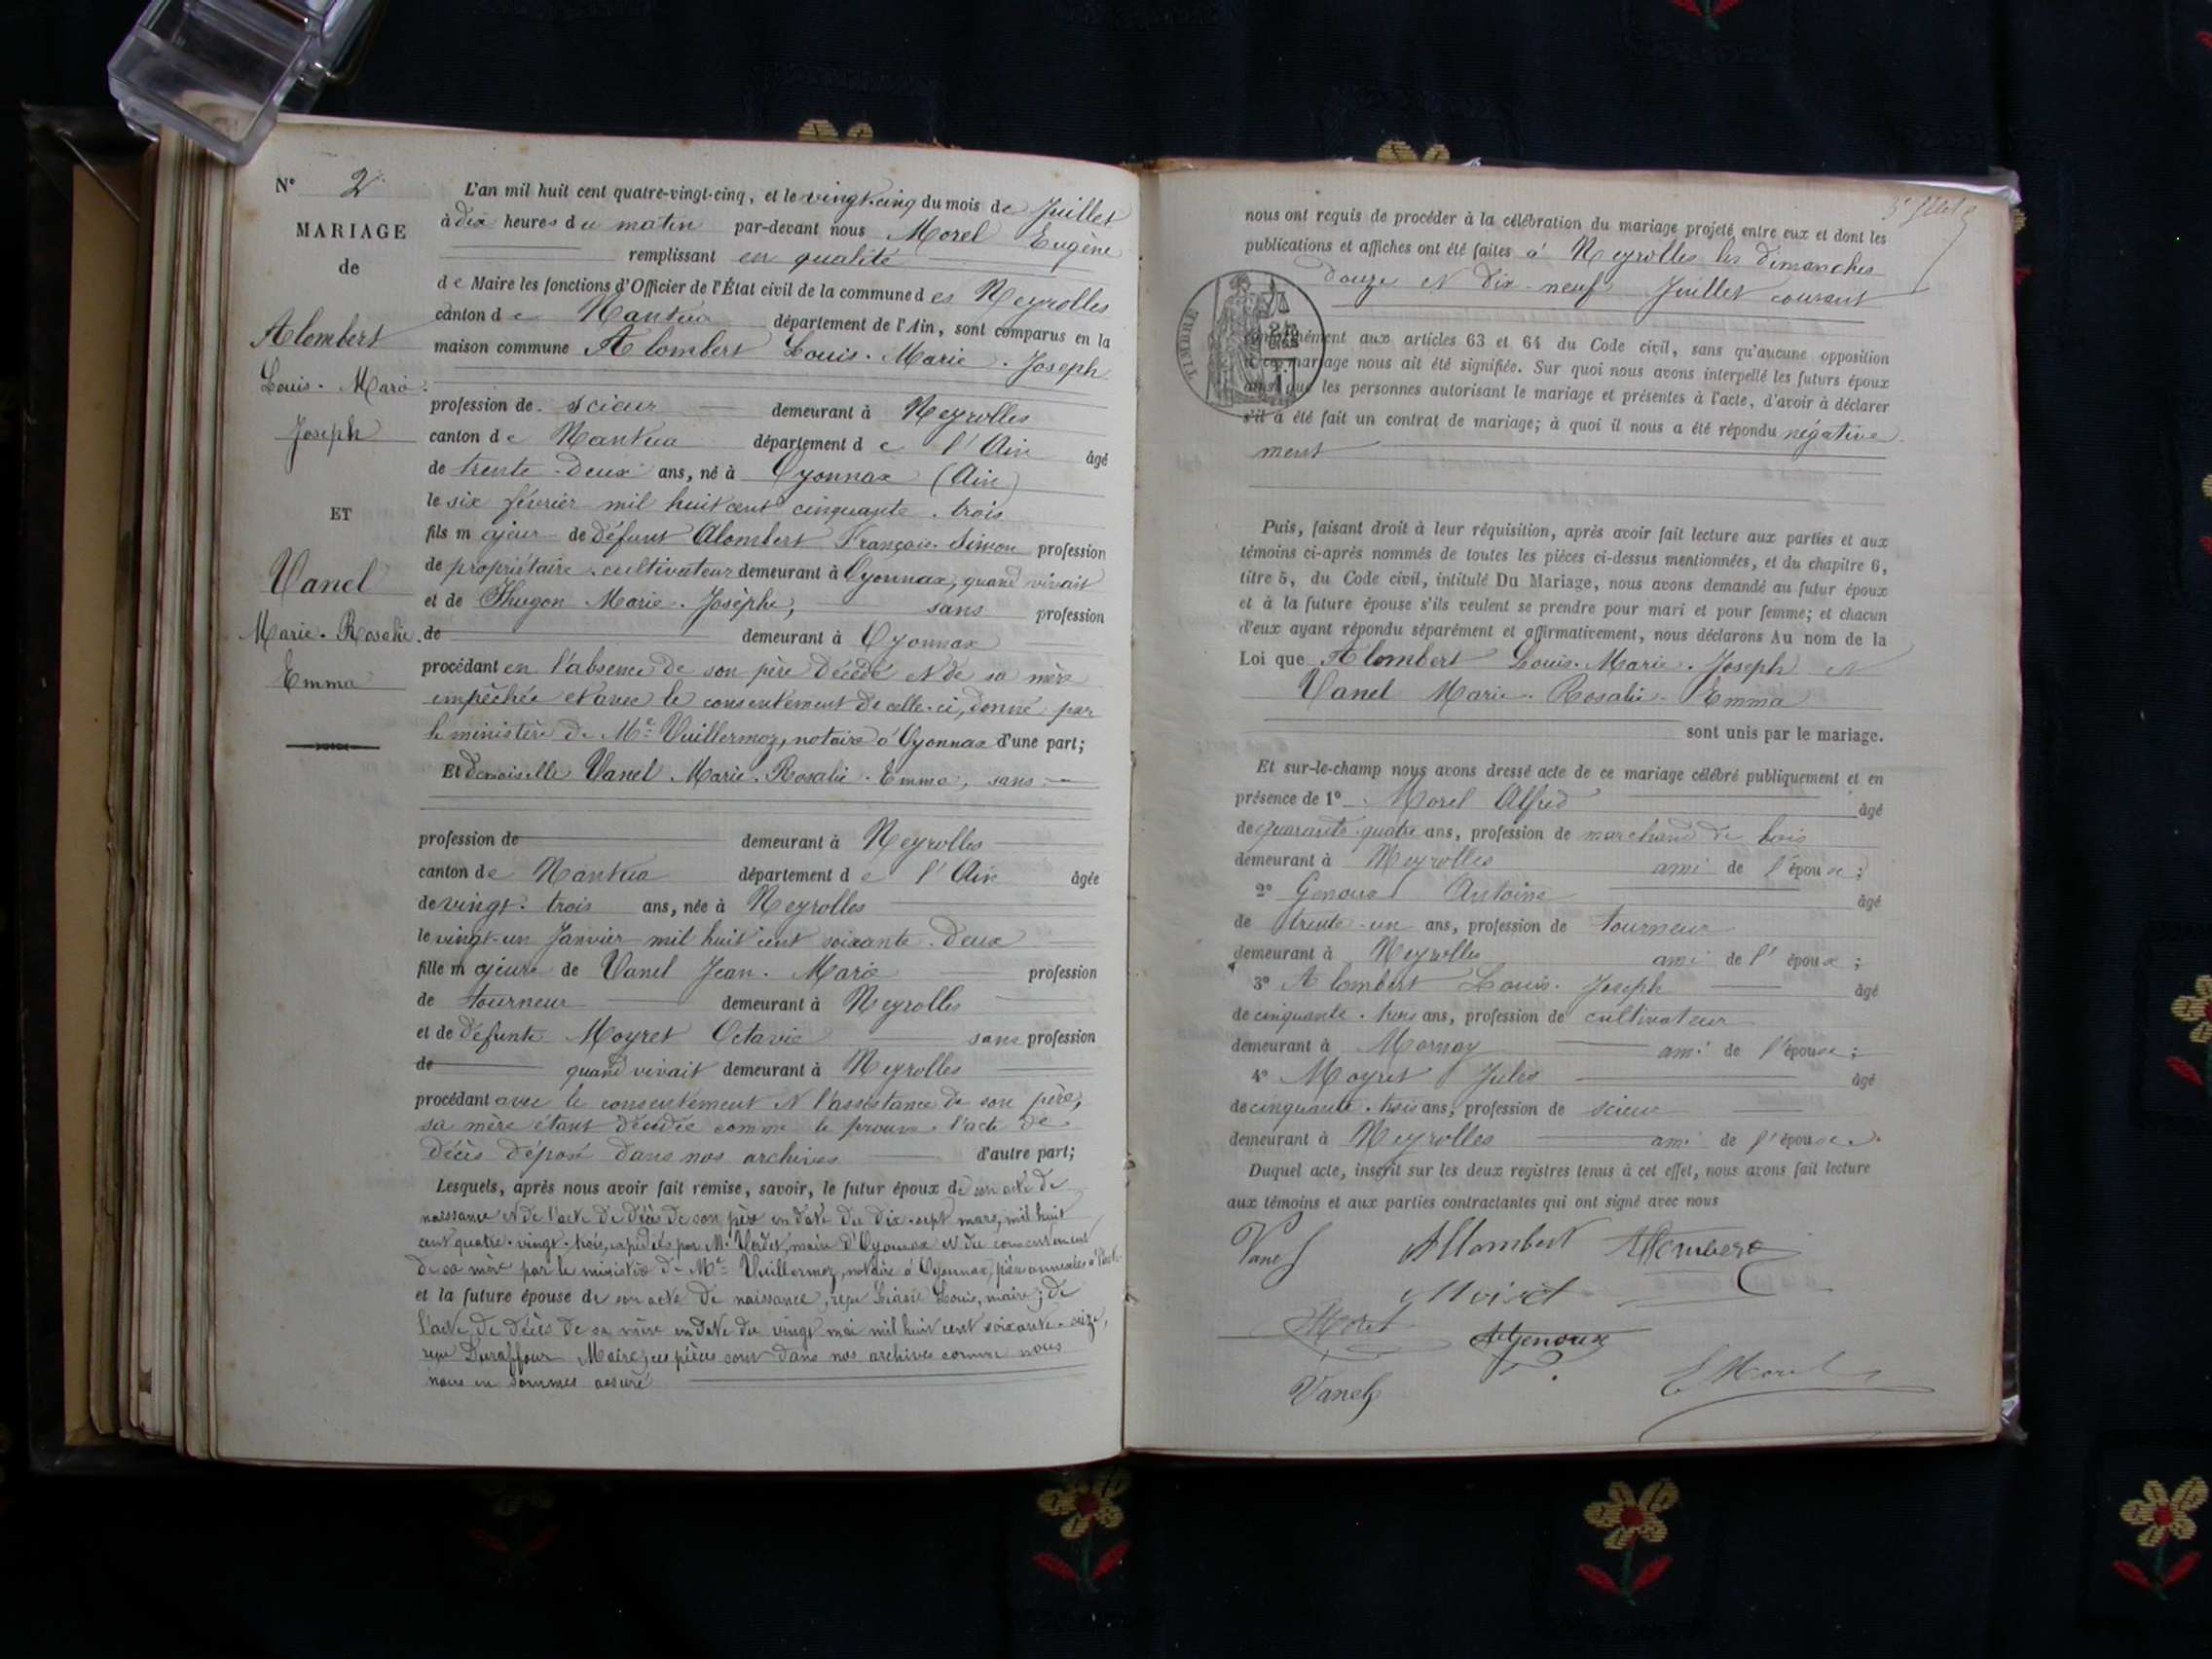 N° 2
MARIAGE
de
Alombert
Louis. Marie.
Joseph
ET
Vanel
Marie. Rosalie.
Emma
L'an mil huit cent quatre-vingt-cinq, et le vingt-cinq du mois de Juillet
à dix heures du matin par-devant nous Morel Eugène
remplissant en qualité
de Maire les fonctions d'Officier de l'État civil de la commune des Neyrolles
canton de Nantua département de l'Ain, sont comparus en la
maison commune Alombert Louis. Marie. Joseph
profession de scieur demeurant à Neyrolles
canton de Nantua département de l'Ain âgé
de trente-deux ans, né à Oyonnax (Ain)
le six février mil huit cent cinquante-trois
fils majeur de défunt Alombert François. Simon profession
de propriétaire-cultivateur demeurant à Oyonnax, quand vivait
et de Hugon Marie. Josèphe, sans profession
de demeurant à Oyonnax
procédant en l'absence de son père décédé et de sa mère
empêchée et avec le consentement de celle-ci, donné par
le ministère de Me Vuillermoz, notaire à Oyonnax d'une part;
Et demoiselle Vanel. Marie. Rosalie. Emma, sans
profession de demeurant à Neyrolles
canton de Nantua département de l'Ain âgée
de vingt-trois ans, née à Neyrolles
le vingt-un Janvier mil huit cent soixante-deux
fille majeure de Vanel Jean. Marie profession
de tourneur demeurant à Neyrolles
et de défunte Moyret Octavie sans profession
de quand vivait demeurant à Neyrolles
procédant avec le consentement et l'assistance de son père,
sa mère étant décédée comme le prouve l'acte de
décès déposé dans nos archives d'autre part;
Lesquels, après nous avoir fait remise, savoir, le futur époux de son acte de
naissance et de l'acte de décès de son père en date du dix-sept mars, mil huit
cent quatre-vingt-trois, expédiés par M. Verdet, maire d'Oyonnax et du consentement
de sa mère par le ministère de Me Vuillermoz, notaire à Oyonnax, pièces annexées à l'acte
et la future épouse de son acte de naissance, reçu Louis, maire; de
l'acte de décès de sa mère en date du vingt mai mil huit cent soixante-seize,
reçu Duraffour Maire, ces pièces sont dans nos archives comme nous
nous en sommes assuré
nous ont requis de procéder à la célébration du mariage projeté entre eux et dont les
publications et affiches ont été faites à Neyrolles les dimanches
douze et dix-neuf Juillet courant
TIMBRE
conformément aux articles 63 et 64 du Code civil, sans qu'aucune opposition
à ce mariage nous ait été signifiée. Sur quoi nous avons interpellé les futurs époux
ainsi que les personnes autorisant le mariage et présentes à l'acte, d'avoir à déclarer
s'il a été fait un contrat de mariage; à quoi il nous a été répondu négative-
ment
Puis, faisant droit à leur réquisition, après avoir fait lecture aux parties et aux
témoins ci-après nommés de toutes les pièces ci-dessus mentionnées, et du chapitre 6,
titre 5, du Code civil, intitulé Du Mariage, nous avons demandé au futur époux
et à la future épouse s'ils veulent se prendre pour mari et pour femme; et chacun
d'eux ayant répondu séparément et affirmativement, nous déclarons Au nom de la
Loi que Alombert Louis. Marie. Joseph et
Vanel Marie. Rosalie. Emma
sont unis par le mariage.
Et sur-le-champ nous avons dressé acte de ce mariage célébré publiquement et en
présence de 1° Morel Alfred âgé
de quarante-quatre ans, profession de marchand de bois
demeurant à Neyrolles ami de l'épouse;
2° Genoux Antoine âgé
de trente-un ans, profession de tourneur
demeurant à Neyrolles ami de l'épouse;
3° Alombert Louis. Joseph âgé
de cinquante-trois ans, profession de cultivateur
demeurant à Mornay ami de l'épouse;
4° Moyret Jules âgé
de cinquante-trois ans, profession de scieur
demeurant à Neyrolles ami de l'épouse.
Duquel acte, inscrit sur les deux registres tenus à cet effet, nous avons fait lecture
aux témoins et aux parties contractantes qui ont signé avec nous
Vanel Allombert Allombert
Moirèt
Morel A Genoux
Vanel E Morel